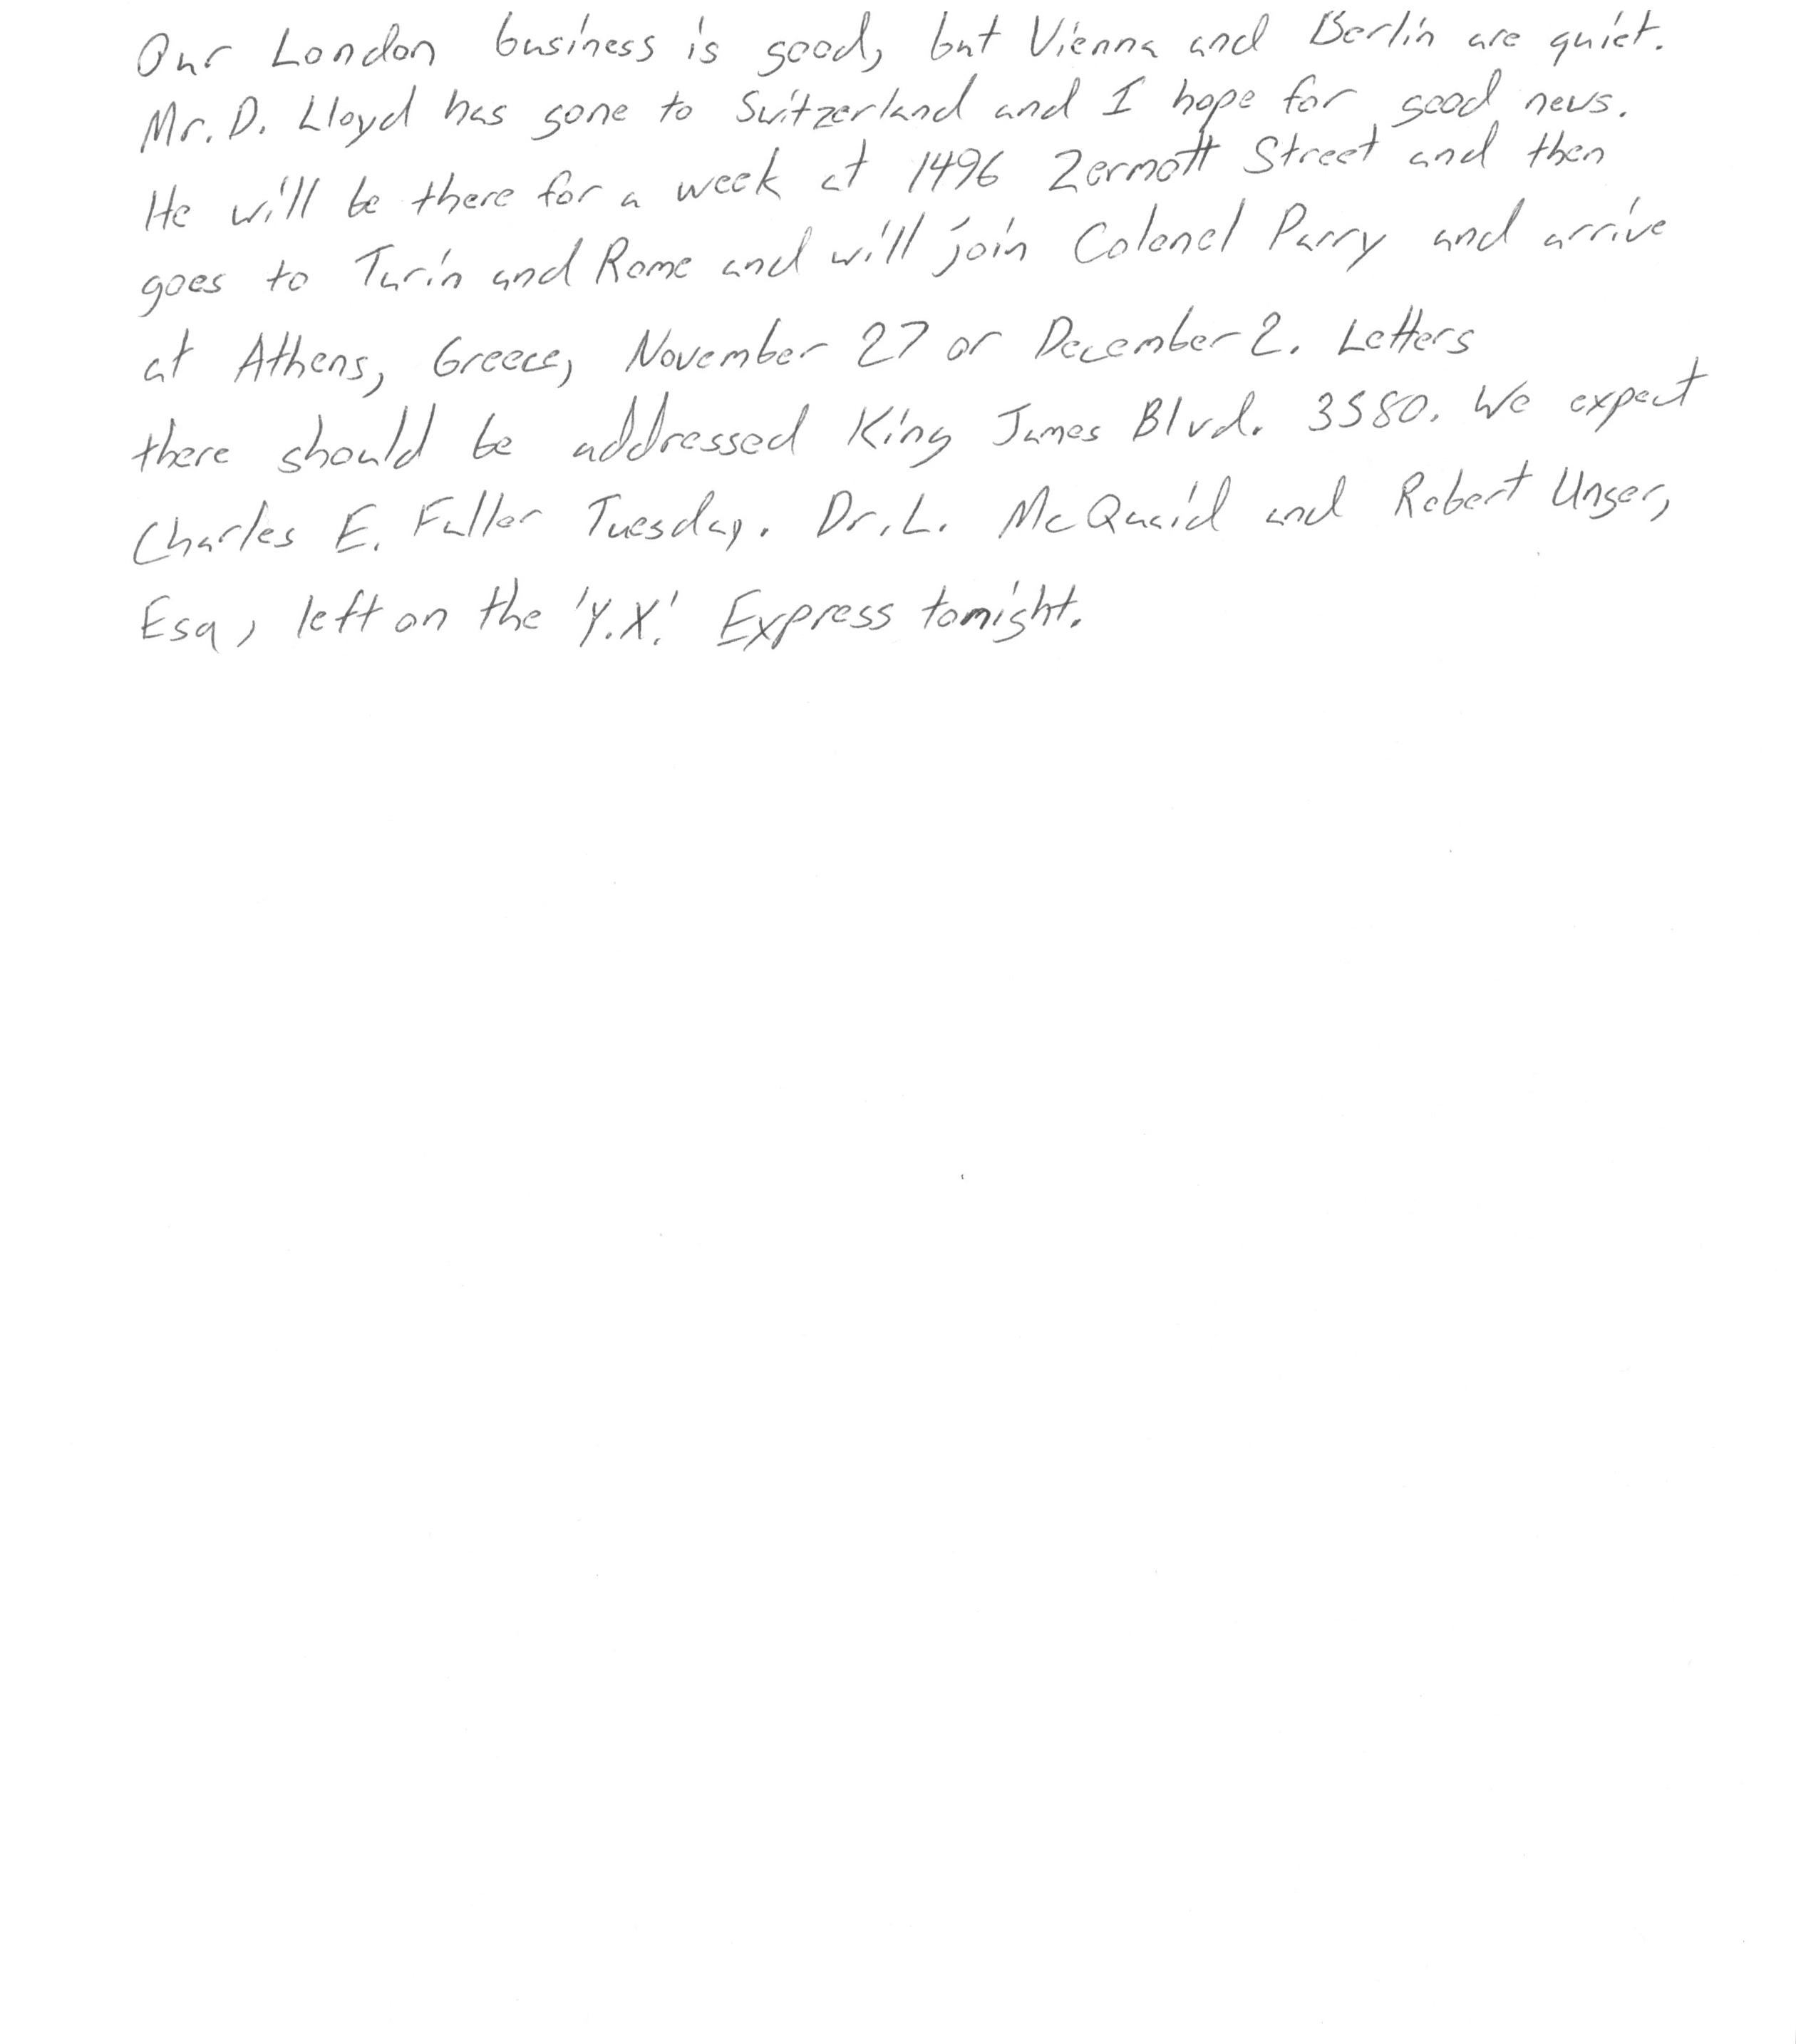 Our London business is good, but Vienna and Berlin are quiet.
Mr. D. Lloyd has gone to Switzerland and I hope for good news.
He will be there for a week at 1496 Zermott Street and then
goes to Turin and Rome and will join Colonel Parry and arrive
at Athens, Greece, November 27 or December 2. Letters
there should be addressed King James Blvd. 3580. We expect
Charles E. Fuller Tuesday. Dr. L. McQuaid and Robert Unger,
Esq, left on the 'Y.X.' Express tonight.